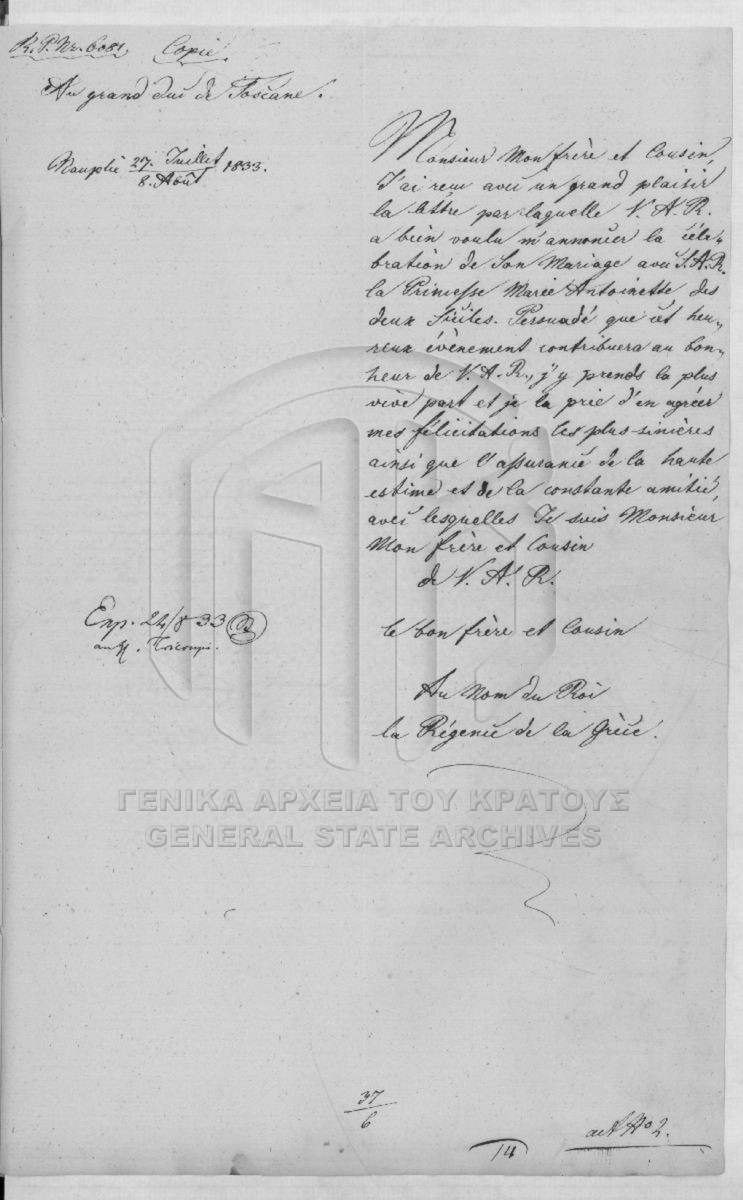 R. P. Nr. 6081. Copie.
Au grand duc de Toscane.
Nauplie 27. Juillet / 8. Août 1833.
Monsieur Mon frère et Cousin,
J'ai reçu avec un grand plaisir
la lettre par laquelle V. A. R.
a bien voulu m'annoncer la célé-
bration de Son Mariage avec S. A. R.
la Princesse Marie Antoinette des
deux Siciles. Persuadé que cet heu-
reux évènement contribuera au bon-
heur de V. A. R., j'y prends la plus
vive part et je la prie d'en agréer
mes félicitations les plus sincères
ainsi que l'assurance de la haute
estime et de la constante amitié,
avec lesquelles Je suis Monsieur
Mon frère et Cousin
de V. A. R.
Exp. 24/8 33
le bon frère et Cousin
Au Nom du Roi
la Régence de la Grèce.
ΓΕΝΙΚΑ ΑΡΧΕΙΑ ΤΟΥ ΚΡΑΤΟΥΣ
GENERAL STATE ARCHIVES
37
6
ad No 2.
14